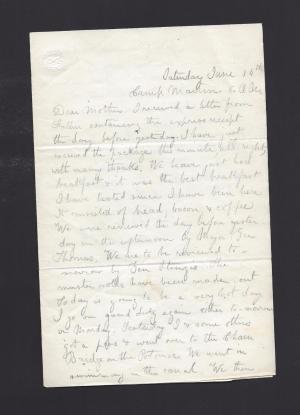 Saturday June 14th
Camp Marlin
Dear Mother. I received a letter from
Father containing the express receipt
the day before yesterday. I have just
received the package this minute all right
with many thanks. We have just had
breakfast & it was the best breakfast
I have tasted since I have been here
It consisted of bread, bacon & coffee
We were reviewed the day before yester
day in the afternoon by Major Gen
Thomas. We are to be reviewed to-
morrow by Gen Sturgis. The
muster rolls have been made out
today is going to be a very hot day
I go on guard duty again either to-morrow
or Monday. Yesterday I & some others
got a pass & went over to the Chain
Bridge on the Potomac. We went in
swimming in the canal. We then